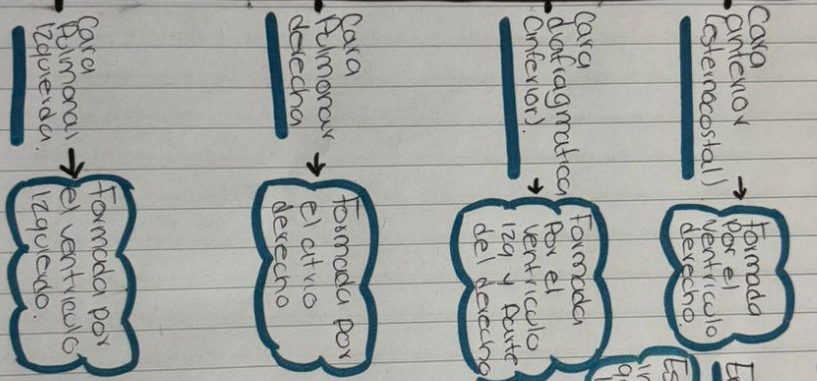 Cara
anterior
(esternocostal)
Formada
por el
ventriculo
derecho.
Cara
diafragmatica
(inferior).
Formada
Por el
ventriculo
izq y Parte
del derecho
Cara
Pulmonar
derecha
Formada por
el atrio
derecho
Cara
Pulmonal
Izquierda.
Formada por
el ventriculo
Izquierdo.